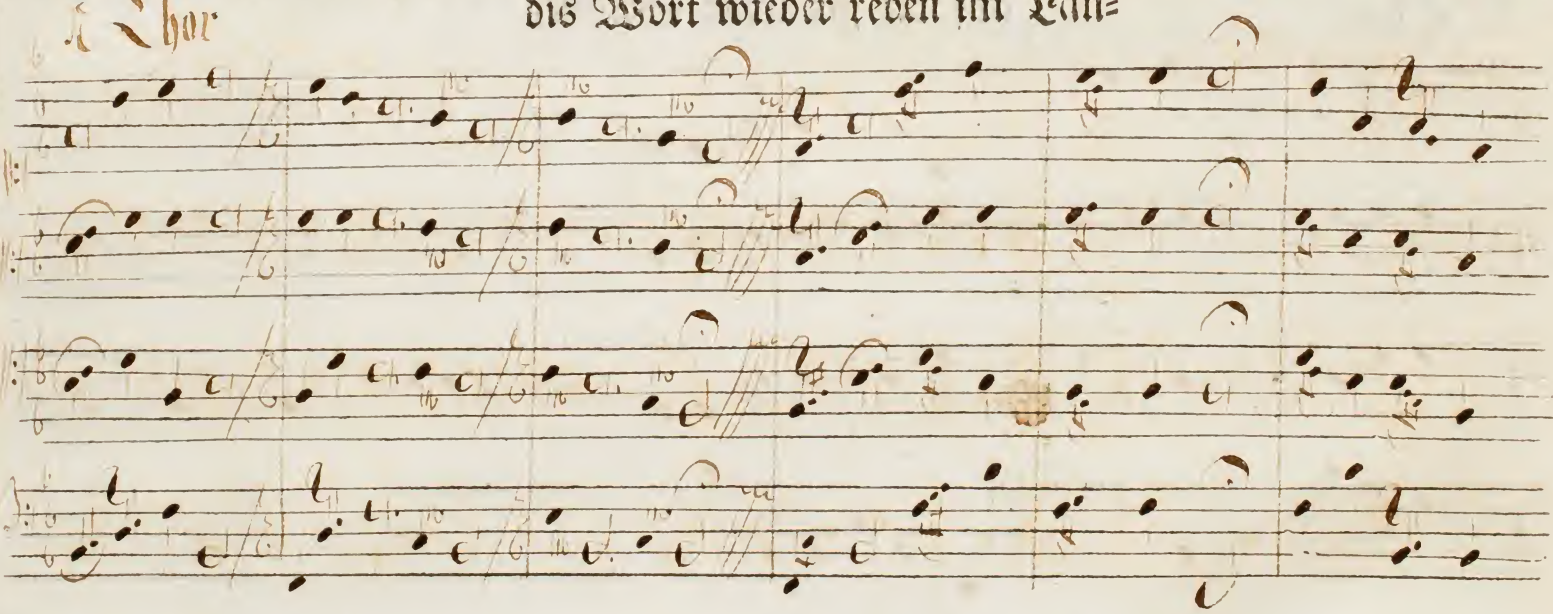 Chor
dis Wort wieder reden im Lan=